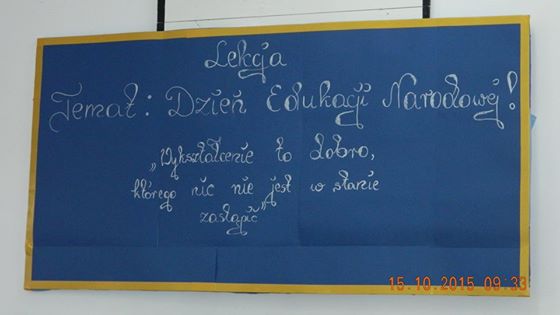 Lekcja
Temat: Dzień Edukacji Narodowej!
„Wykształcenie to dobro,
którego nic nie jest w stanie
zastąpić”
15.10.2015 09:33